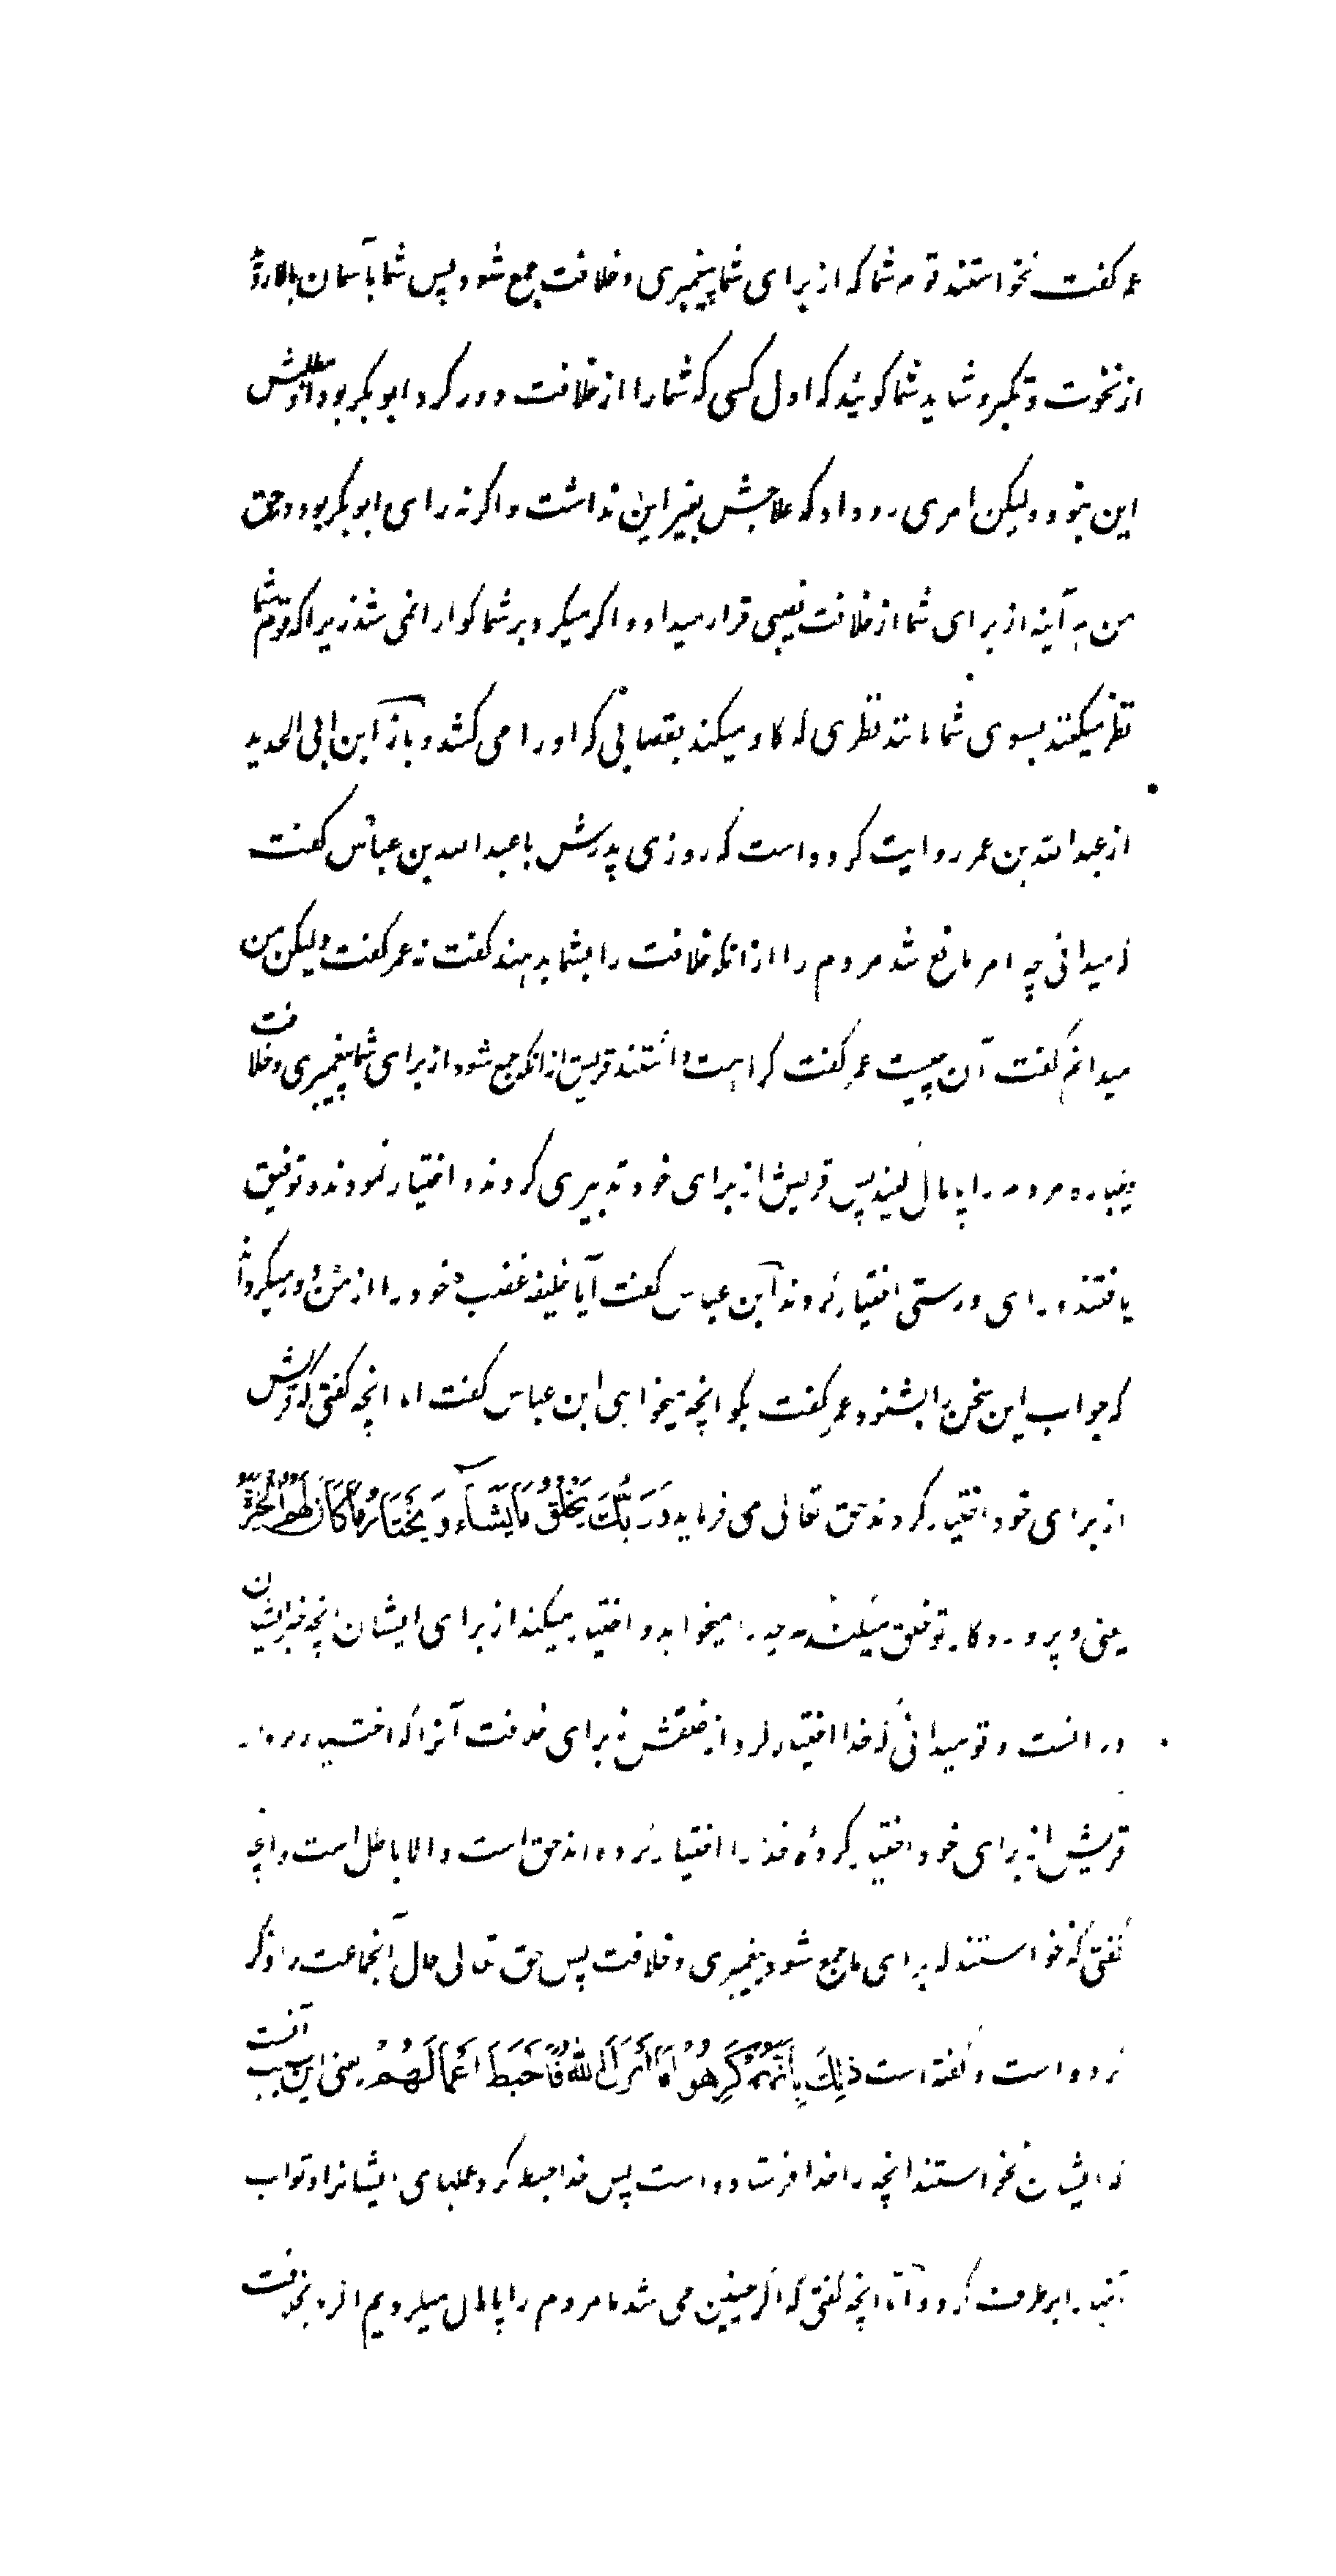 عمر کفت نخواستند قوم شما که از برای شما پیغمبری و خلافت جمع شود پس شما بآسمان بالا روید
از نخوت و تکبر و شاید شما کوئید که اول کسی که شما را از خلافت دور کرد ابو بکر بود او مطلبش
این نبود و لیکن امری رو داد که علاجش بغیر این نداشت و اکر نه رای ابو بکر بود در حق
من هر آینه از برای شما از خلافت نصیبی قرار میداد و اکر میکرد بر شما کوارا نمی شد زیرا که قوم شما
نظر میکنند بسوی شما مانند نظری که کاو میکند بقصابی که او را می کشد و باز ابن ابی الحدید
از عبد الله بن عمر روایت کرده است که روزی پدرش با عبد الله بن عباس کفت
که میدانی چه امر مانع شد مردم را از انکه خلافت را بشما بدهند کفت نه عمر کفت و لیکن من
میدانم کفت آن چیست عمر کفت کراهت داشتند قریش از انکه جمع شود از برای شما پیغمبری و خلافت
مردم را پامال کنید پس قریش از برای خود تدبیری کردند و اختیار نمودند و توفیق
یافتند و رای درستی اختیار کردند ابن عباس کفت آیا خلیفه غضب خود را از من دور میکرداند
که جواب این سخن را بشنود عمر کفت بکو انچه میخواهی ابن عباس کفت اما انچه کفتی که قریش
از برای خود اختیار کردند حق تعالی می فرماید وَرَبُّكَ يَخْلُقُ مَا يَشَآءُ وَيَخْتَارُ مَا كَانَ لَهُمُ الْخِيَرَةُ
یعنی و پروردکار تو خلق میکند هر چه را میخواهد و اختیار میکند از برای ایشان انچه خیر ایشان
در انست و تو میدانی که خدا اختیار کرد از خلقش برای خلافت آنرا که اختیار کرد اکر
قریش از برای خود اختیار کرده خدا را اختیار کرده اند حق است و الا باطل است و انچه
کفتی که نخواستند که برای ما جمع شود پیغمبری و خلافت پس حق تعالی حال آنجماعت را ذکر
کرده است و کفته است ذلِكَ بِأَنَّهُمْ كَرِهُوا مَا أَنْزَلَ اللهُ فَأَحْبَطَ أَعْمَالَهُمْ یعنی این بسبب آنست
که ایشان نخواستند انچه را خدا فرستاده است پس خدا حبط کرد عملهای ایشانرا و ثواب
آنها را برطرف کرد و اما انچه کفتی که اکر چنین می شد ما مردم را پامال میکردیم اکر بخلافت